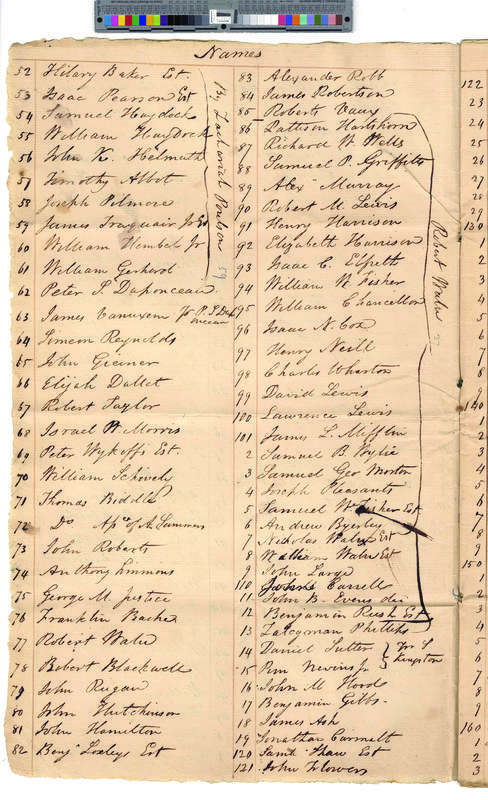 Names
52 Hilary Baker Est
53 Isaac Pearson Est
54 Samuel Haydock
55 William Haydock
56 John K. Helmuth
57 Timothy Abbot
58 Joseph Pilmore
59 James Traquair Jr Est
60 William Hembel Jr
61 William Gerhard
62 Peter S Duponceau
63 James Vanuxem Pr P. S. Dup
onceau
64 Simeon Reynolds
65 John Greiner
66 Elijah Dallet
67 Robert Taylor
68 Israel W. Morris
69 Peter Wykoffs Est.
70 William Schively
71 Thomas Biddle
72 Do of A. Summers
73 John Roberts
74 Anthony Simmons
75 George M. Justice
76 Franklin Bache
77 Robert Waln
78 Robert Blackwell
79 John Rugan
80 John Hutchinson
81 John Hamilton
82 Benj Loxleys Est
By Zachariah Poulson
59
83 Alexander Robb
84 James Robertson
85 Roberts Vaux
86 Pattison Hartshorn
87 Richard W. Wells
88 Samuel P. Griffitts
89 Alex Murray
90 Robert M. Lewis
91 Henry Harrison
92 Elizabeth Harrison
93 Isaac C. Elfreth
94 William W. Fisher
95 William Chancellor
96 Isaac N. Cox
97 Henry Neill
98 Charles Wharton
99 David Lewis
100 Lawrence Lewis
101 James L. Mifflin
2 Samuel B. Wylie
3 Samuel Geo Morton
4 Joseph Pleasants
5 Samuel W Fisher Est
6 Andrew Byerley
7 Nicholas Waln Est
8 William Waln Est
9 John Large
110 Carrell
11 John B.
12 Benjamin Rush Est
13 Phillips
14 Daniel Sutter
15 Pim Nevins Jr
16 John M Hood
17 Benjamin Gibbs
18 James Ash
19 Jonathan Carmalt
120 Saml Shaw Est
121 John Flowers
Robert Waln
27
Pr S
Kingston
122
23
24
25
26
27
28
29
130
1
2
3
4
5
6
7
8
9
140
1
2
3
4
5
6
7
8
9
150
1
2
3
4
5
6
7
8
9
160
1
2
3